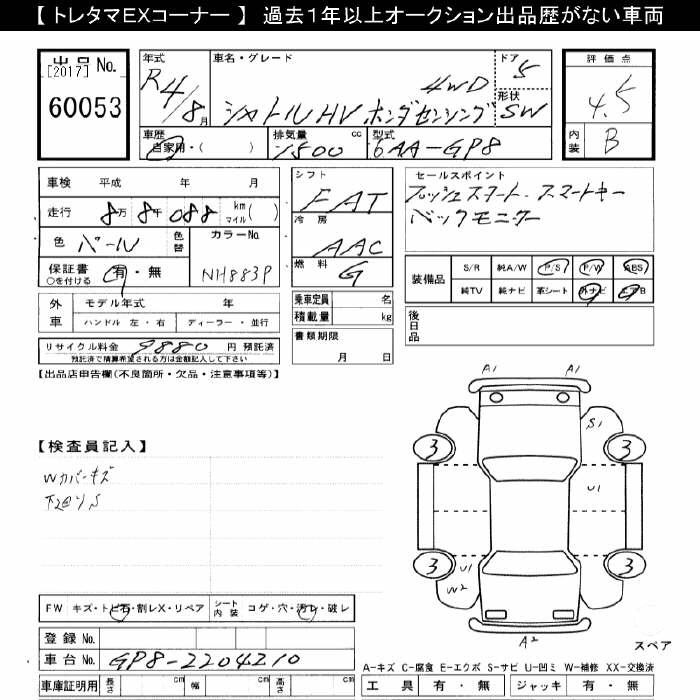 【 トレタマEXコーナー 】 過去1年以上オークション出品歴がない車両
出品 No.
[2017]
60053
年式
R4/8月
車名・グレード
4WD
シャトルHV ホンダセンシング
ドア 5
形状 SW
車歴
自家用・( )
排気量 cc
1500
型式
6AA-GP8
評価点
4.5
内装
B
車検 平成 年 月
走行 8万 8千 088 km マイル( )
色 パール 色替
カラーNo.
NH883P
保証書 ○を付ける 有・無
シフト
FAT
冷房
AAC
燃料
G
セールスポイント
プッシュスタート・スマートキー
バックモニター
装備品
S/R 純A/W P/S P/W ABS
純TV 純ナビ 革シート 外ナビ エアB
外車
モデル年式 年
ハンドル 左・右 ディーラー・並行
乗車定員 名
積載量 kg
後日品
リサイクル料金 9880 円 預託済
預託済で精算希望される方は金額記入して下さい
書類期限
月 日
【出品店申告欄(不良箇所・欠品・注意事項等)】
【検査員記入】
Wカバーキズ
A1 A1
S1
3 3
U1
3 3
U1
W2
A2
スペア
FW キズ・トビ石・割レX・リペア
シート内装 コゲ・穴・汚レ・破レ
登録 No.
車台 No. GP8-2204210
車庫証明用 長さ cm 幅 cm 高さ cm
A-キズ C-腐食 E-エクボ S-サビ U-凹ミ W-補修 XX-交換済
工具 有・無 ジャッキ 有・無